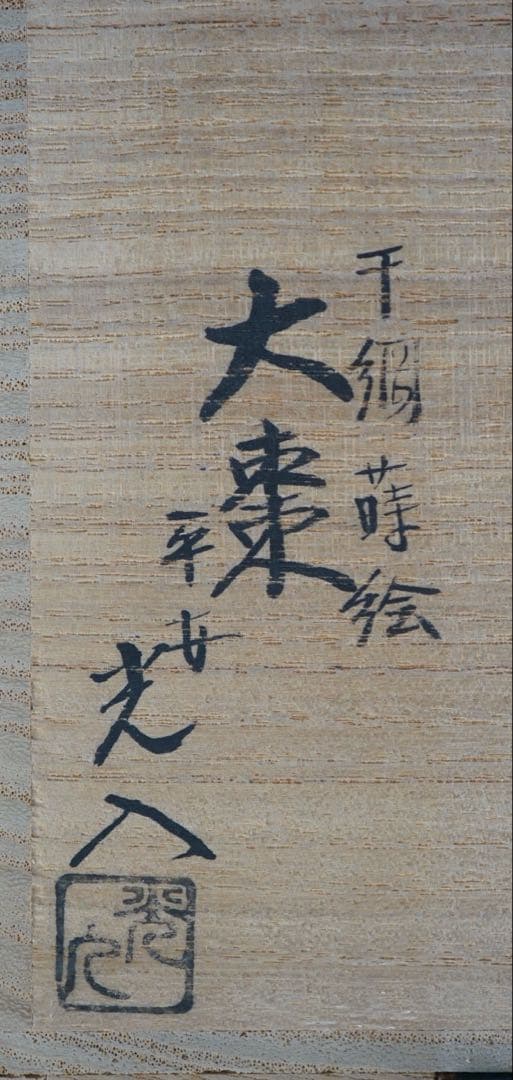 干網蒔絵
大棗
平安
光入